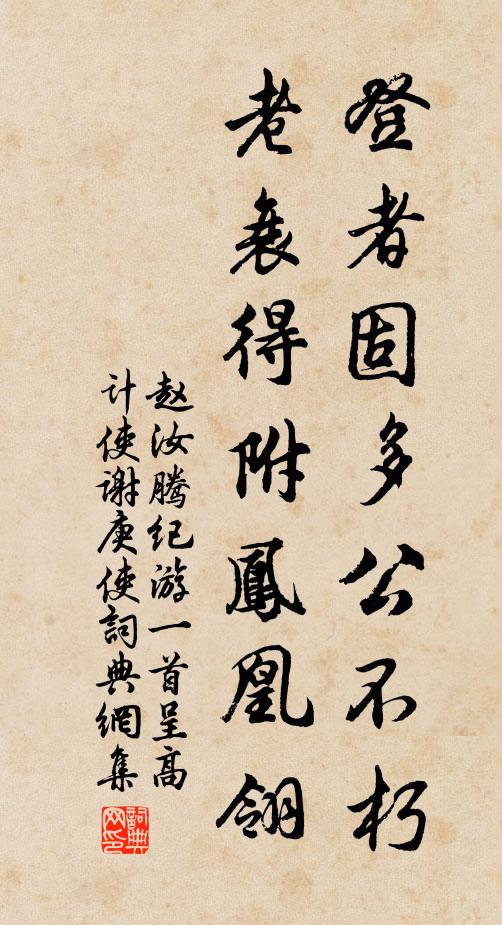 登者固多公不朽
老衰得附鳳凰翎
赵汝腾纪游一首呈高
计使谢庚使詞典網集
詞典网印